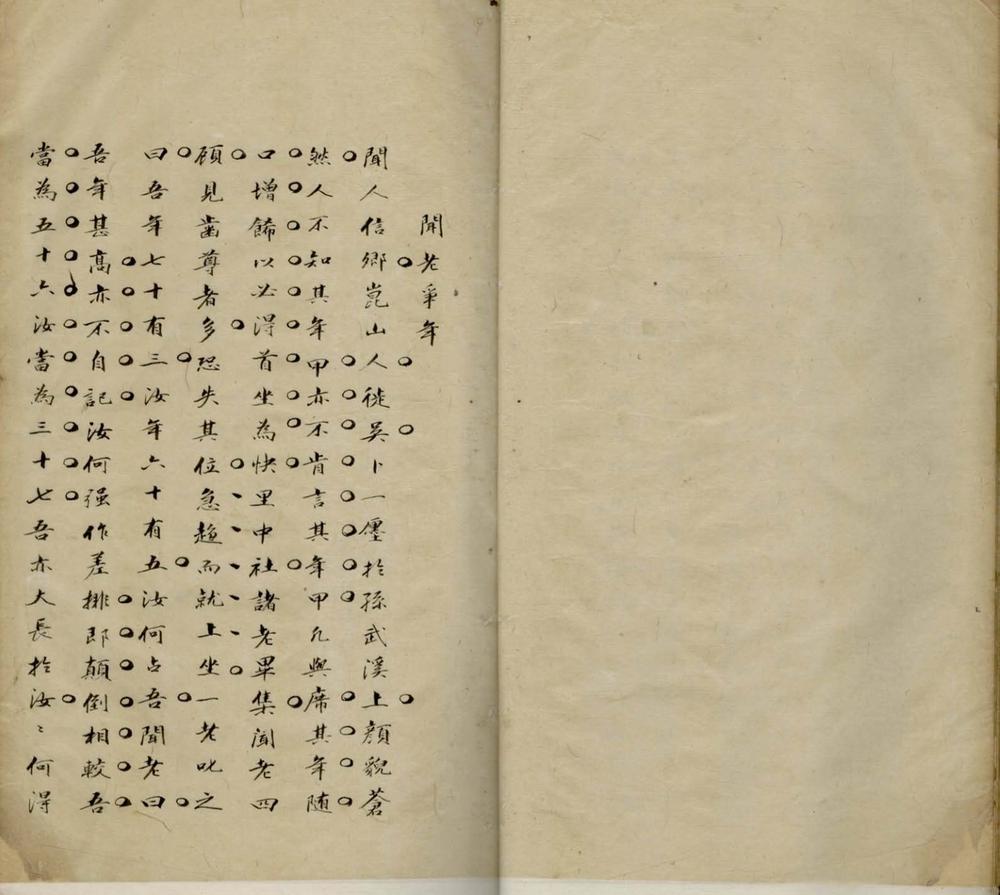 聞老爭年
聞人信鄉崑山人徙吳卜一廛於孫武溪上顏貌蒼
然人不知其年甲亦不肯言其年甲凡與席其年隨
口增餙以必得首坐為快里中社諸老畢集聞老四
顧見齒尊者多恐失其位急趨而就上坐一老叱之
曰吾年七十有三汝年六十有五汝何占吾聞老曰
吾年甚高亦不自記汝何强作差排即顛倒相較吾
當為五十六汝當為三十七吾亦大長於汝〻何得